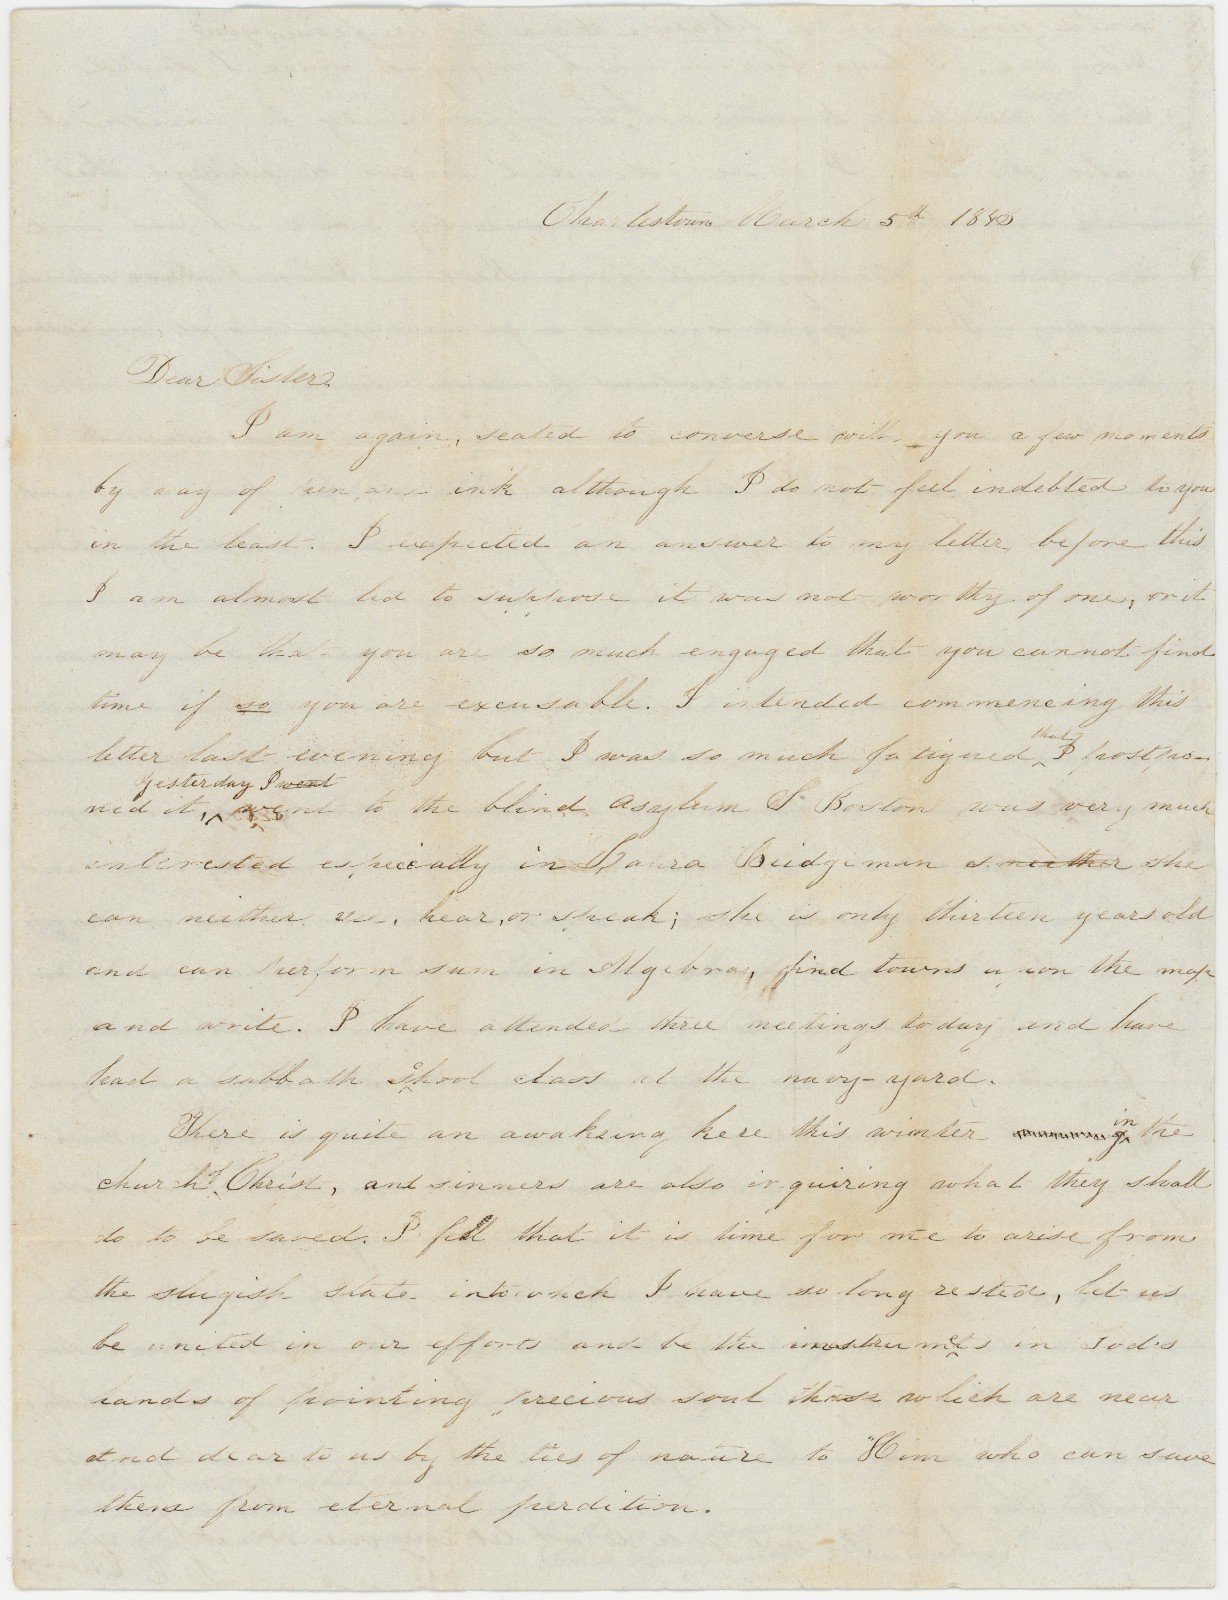 Charlestown March 5th 1843
Dear Sister.
I am again, seated to converse with you a few moments
by way of pen and ink although I do not feel indebted to you
in the least. I expected an answer to my letter before this
I am almost led to suppose it was not worthy of one, or it
may be that you are so much engaged that you cannot find
time if so you are excusable. I intended commencing this
letter last evening but I was so much fatigued that I postpo-
ned it, yesterday I went went to the blind Asylum S. Boston was very much
interested especially in Laura Bridgeman s neither she
can neither see, hear, or speak; she is only thirteen years old
and can perform sum in Algebra, find towns upon the map
and write. I have attended three meetings today and have
had a sabbath school class at the navy-yard.
There is quite an awakning here this winter in the
church of Christ, and sinners are also inquiring what they shall
do to be saved. I fell that it is time for me to arise from
the slugish state into which I have so long rested, let us
be united in our efforts and be the instrumets in God's
hands of pointing precious soul those which are near
and dear to us by the ties of nature to "Him who can save
them from eternal perdition.